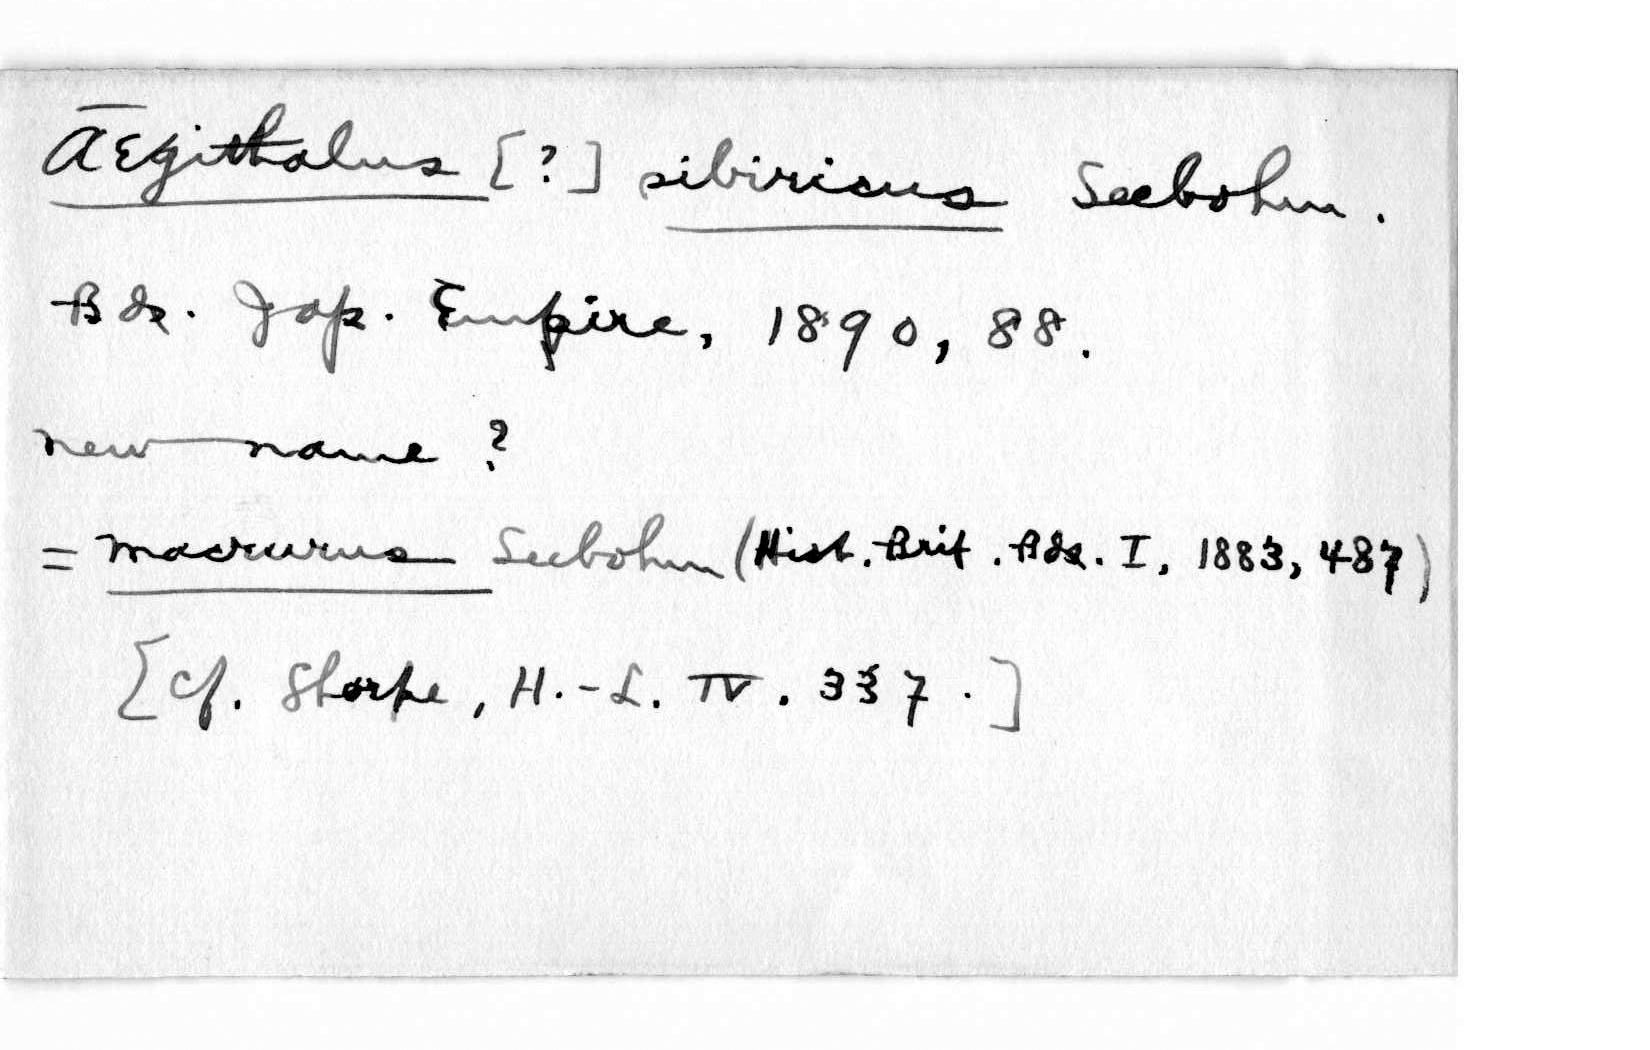 Aegithalus [?] sibiricus Seebohm.
Bds. Jap. Empire, 1890, 88.
new name ?
= macrurus Seebohm (Hist. Brit. Bds. I, 1883, 487)
[cf. Sharpe, H.-L. IV. 337.]